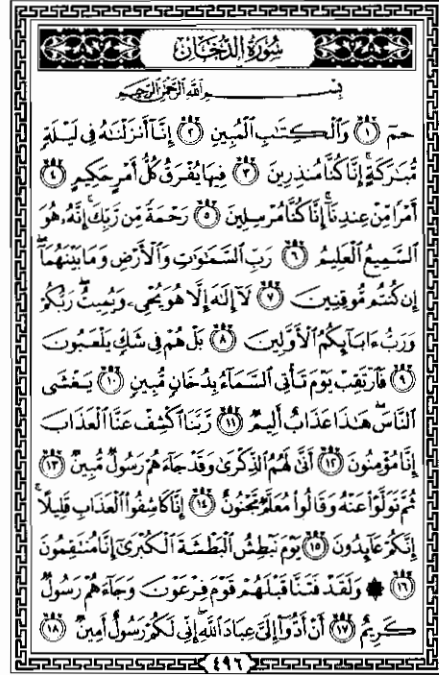 سُورَةُ الدُّخَانِ
بِسْمِ اللَّهِ الرَّحْمَٰنِ الرَّحِيمِ
حمٓ ١ وَٱلْكِتَٰبِ ٱلْمُبِينِ ٢ إِنَّآ أَنزَلْنَٰهُ فِى لَيْلَةٍ
مُّبَٰرَكَةٍ ۚ إِنَّا كُنَّا مُنذِرِينَ ٣ فِيهَا يُفْرَقُ كُلُّ أَمْرٍ حَكِيمٍ ٤
أَمْرًا مِّنْ عِندِنَآ ۚ إِنَّا كُنَّا مُرْسِلِينَ ٥ رَحْمَةً مِّن رَّبِّكَ ۚ إِنَّهُۥ هُوَ
ٱلسَّمِيعُ ٱلْعَلِيمُ ٦ رَبِّ ٱلسَّمَٰوَٰتِ وَٱلْأَرْضِ وَمَا بَيْنَهُمَآ ۖ
إِن كُنتُم مُّوقِنِينَ ٧ لَآ إِلَٰهَ إِلَّا هُوَ يُحْىِۦ وَيُمِيتُ ۖ رَبُّكُمْ
وَرَبُّ ءَابَآئِكُمُ ٱلْأَوَّلِينَ ٨ بَلْ هُمْ فِى شَكٍّ يَلْعَبُونَ
٩ فَٱرْتَقِبْ يَوْمَ تَأْتِى ٱلسَّمَآءُ بِدُخَانٍ مُّبِينٍ ١٠ يَغْشَى
ٱلنَّاسَ ۖ هَٰذَا عَذَابٌ أَلِيمٌ ١١ رَّبَّنَا ٱكْشِفْ عَنَّا ٱلْعَذَابَ
إِنَّا مُؤْمِنُونَ ١٢ أَنَّىٰ لَهُمُ ٱلذِّكْرَىٰ وَقَدْ جَآءَهُمْ رَسُولٌ مُّبِينٌ ١٣
ثُمَّ تَوَلَّوْا۟ عَنْهُ وَقَالُوا۟ مُعَلَّمٌ مَّجْنُونٌ ١٤ إِنَّا كَاشِفُوا۟ ٱلْعَذَابِ قَلِيلًا ۚ
إِنَّكُمْ عَآئِدُونَ ١٥ يَوْمَ نَبْطِشُ ٱلْبَطْشَةَ ٱلْكُبْرَىٰٓ إِنَّا مُنتَقِمُونَ
١٦ ۞ وَلَقَدْ فَتَنَّا قَبْلَهُمْ قَوْمَ فِرْعَوْنَ وَجَآءَهُمْ رَسُولٌ
كَرِيمٌ ١٧ أَنْ أَدُّوٓا۟ إِلَىَّ عِبَادَ ٱللَّهِ ۖ إِنِّى لَكُمْ رَسُولٌ أَمِينٌ ١٨
٤٩٦